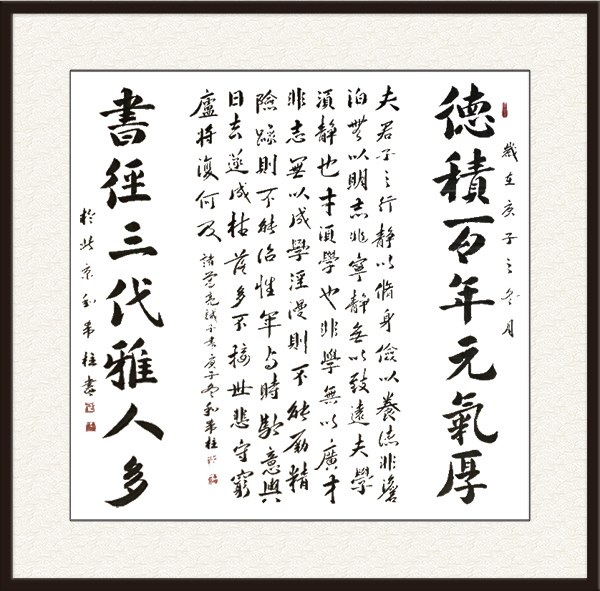 歲在庚子之冬月
德積百年元氣厚
夫君子之行靜以脩身儉以養德非澹
泊無以明志非寧靜無以致遠夫學
須靜也才須學也非學無以廣才
非志無以成學淫漫則不能勵精
險躁則不能治性年与時馳意與
日去遂成枯落多不接世悲守窮
廬將復何及 諸葛亮誡子書庚子冬
書徑三代雅人多
於北京